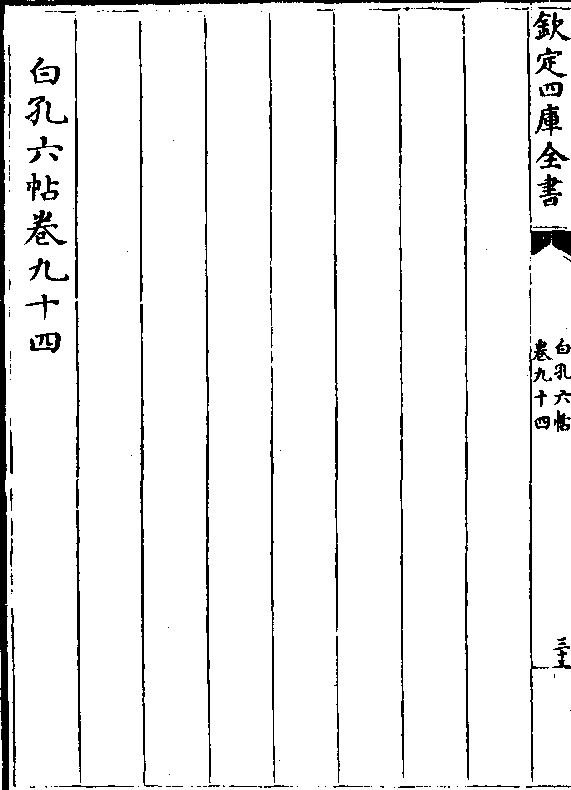 欽定四庫全書
白孔六帖
卷九十四
三十五
白孔六帖卷九十四